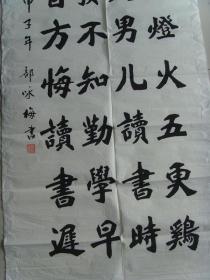 燈火五更鷄
男儿讀書時
不知勤學早
方悔讀書遲
甲子年 咏梅書